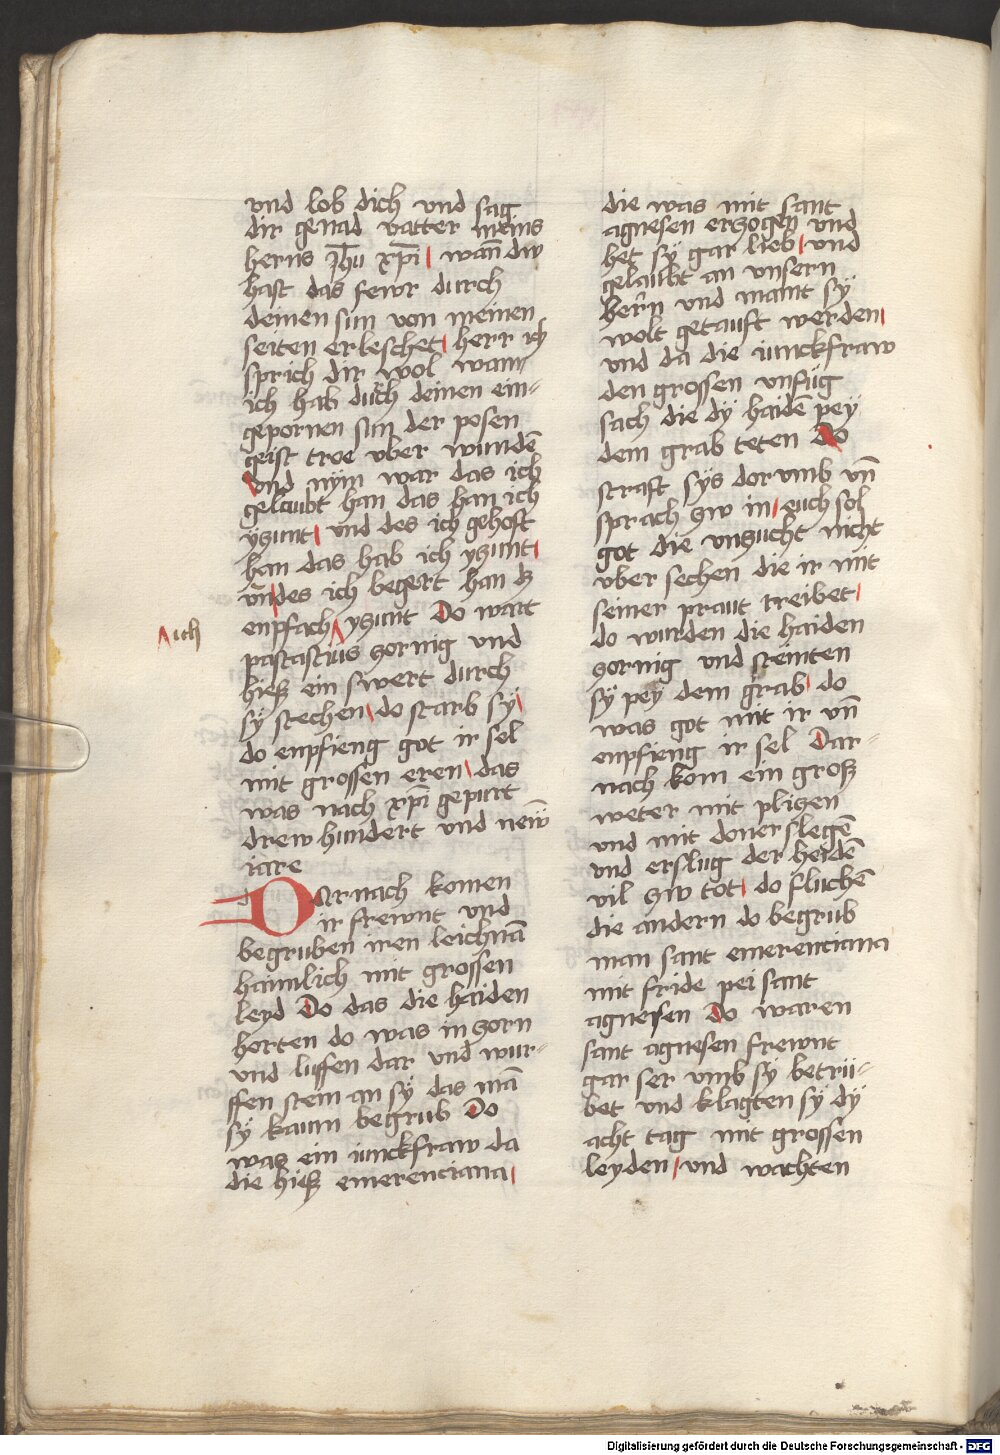 vnd lob dich vnd sag
dir genad vatter meins
herns Jhu xpi wann dw
hast das fewr durch
deinen sun von meinen
seiten erleschet herr ich
sprich dir wol wann
ich hab durch deinen ein-
gepornen sun der posen
geist tree vber wunde͞
vnd nÿm war das ich
gelaubt han das han ich
yzunt vnd des ich gehoft
han das hab ich yzunt
vn͞ des ich begert han dz
enpfach yzunt Do wart
ich
pastastius zornig vnd
hiesz ein swert durch
sÿ stechen do starb sÿ
do enpfieng got ir sel
mit grossen eren das
was nach xpi gepurt
drew hundert vnd new͞
iare
DArnach komen
ir frewnt vnd
begruben iren leichna͞
haimlich mit grossen
leyd Do das die haiden
horten do was in zorn
vnd luffen dar vnd wur-
ffen stein an sÿ das ma͞
sÿ kaum begrub Do
was ein iunckfraw da
die hiesz emerenciana
die was mit sant
agnesen erzogen vnd
het sÿ gar lieb vnd
gelaubt an vnsern
hern vnd maint sÿ
wolt getauft werden
vnd da die iunckfraw
den grossen vnfug
sach die dÿ haide͞ peÿ
dem grab teten Do
straft sÿs dorumb vn͞
sprach zw in euch sol
got die vnzucht nicht
vber sechen die ir mit
seiner praut treibet
do wurden die haiden
zornig vnd steinten
sÿ pey dem grab do
was got mit ir vn͞
enpfieng ir sel Dar-
nach kom ein grosz
weter mit plizen
vnd mit doner slege͞
vnd erslug der heide͞
vil zw tot do fluche͞
die andern do begrub
man sant emerenciana
mit fride pei sant
agnesen Do waren
sant agnesen frewnt
gar ser vmb sÿ betru-
bet vnd klagten sÿ dÿ
acht tag mit grossen
leyden vnd wachten
Digitalisierung gefördert durch die Deutsche Forschungsgemeinschaft - DFG